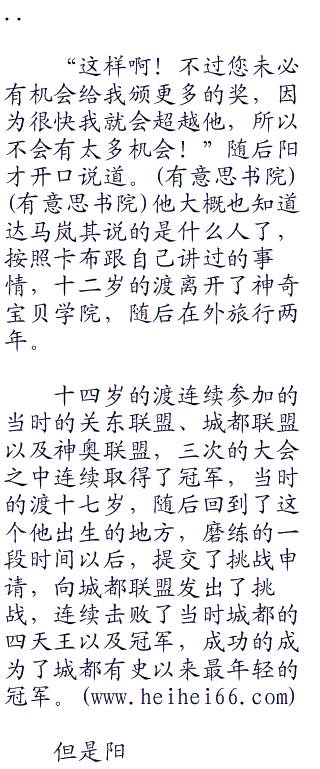 ..
“这样啊！不过您未必
有机会给我颁更多的奖，因
为很快我就会超越他，所以
不会有太多机会！”随后阳
才开口说道。(有意思书院)
(有意思书院)他大概也知道
达马岚其说的是什么人了，
按照卡布跟自己讲过的事
情，十二岁的渡离开了神奇
宝贝学院，随后在外旅行两
年。
十四岁的渡连续参加的
当时的关东联盟、城都联盟
以及神奥联盟，三次的大会
之中连续取得了冠军，当时
的渡十七岁，随后回到了这
个他出生的地方，磨练的一
段时间以后，提交了挑战申
请，向城都联盟发出了挑
战，连续击败了当时城都的
四天王以及冠军，成功的成
为了城都有史以来最年轻的
冠军。(www.heihei66.com)
但是阳